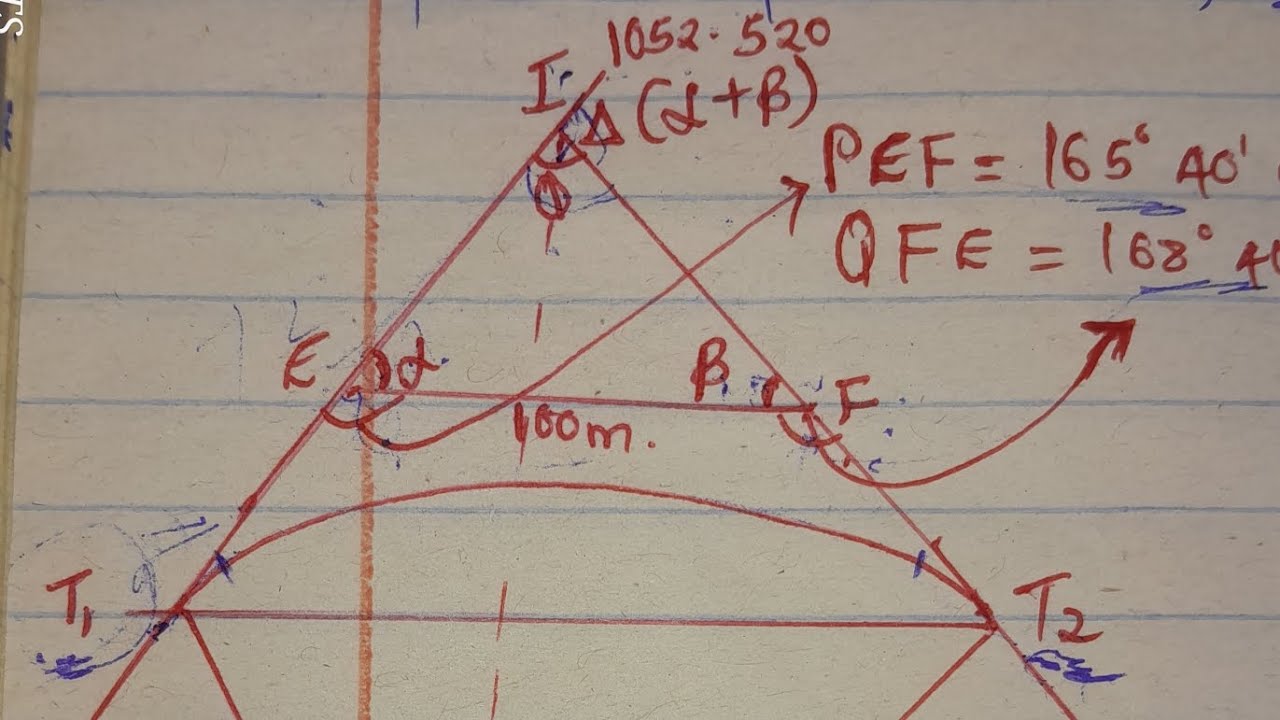 TS
1052.520
I
Δ (α+β)
Φ
PEF = 165° 40'
QFE = 168° 40
E
α
β
F
100m.
T₁
T₂